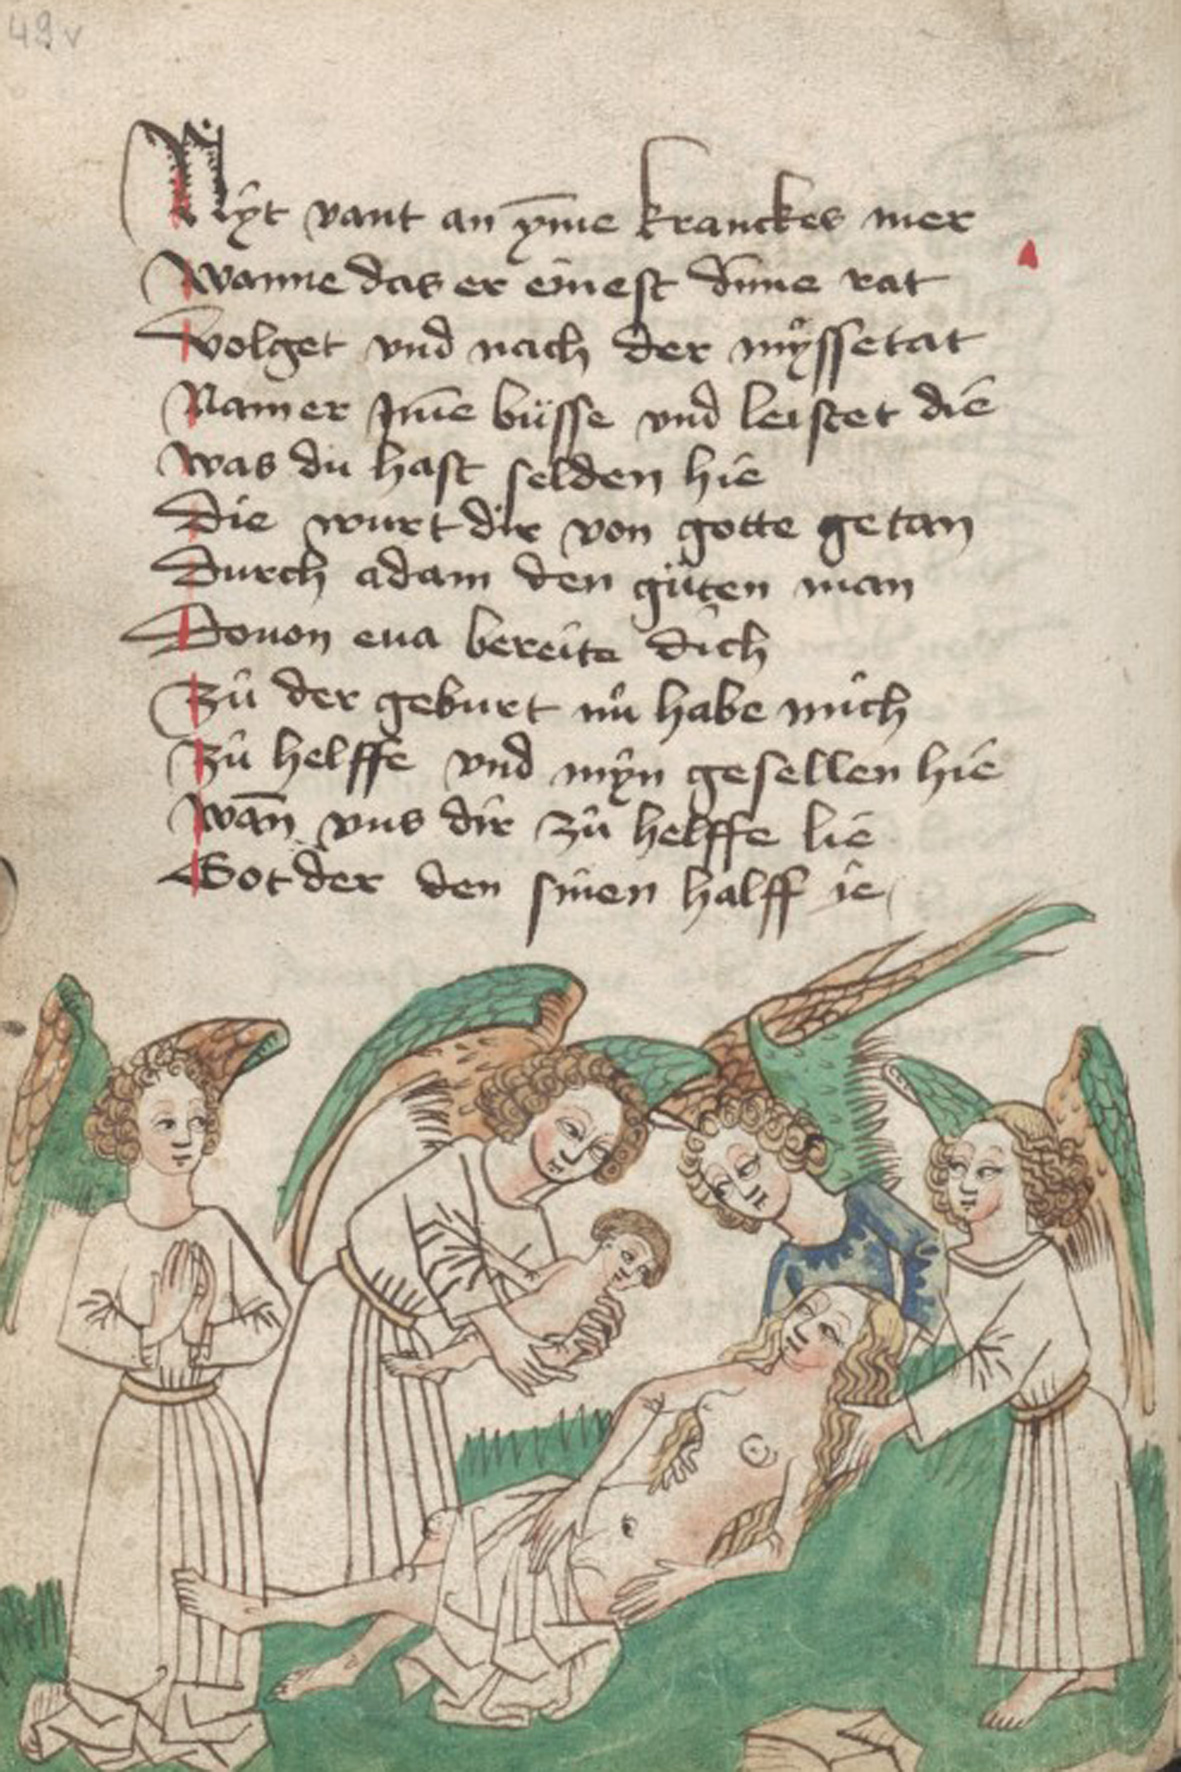 49v
Nÿt vant an ym̄e kranckes mer
Wanne das er einest dine rat
Volget vnd nach der mÿssetat
Namer Im̄e büsse vnd leistet die
Was du hast selden hie
Die wurt dir von gotte getan
Durch adam den gůten man
Douon eua bereite dich
Zů der geburt nů habe mich
Zů helffe vnd mÿn gesellen hie
Wan̄ vns dir zů helffe lie
Got der den sinen halff ie